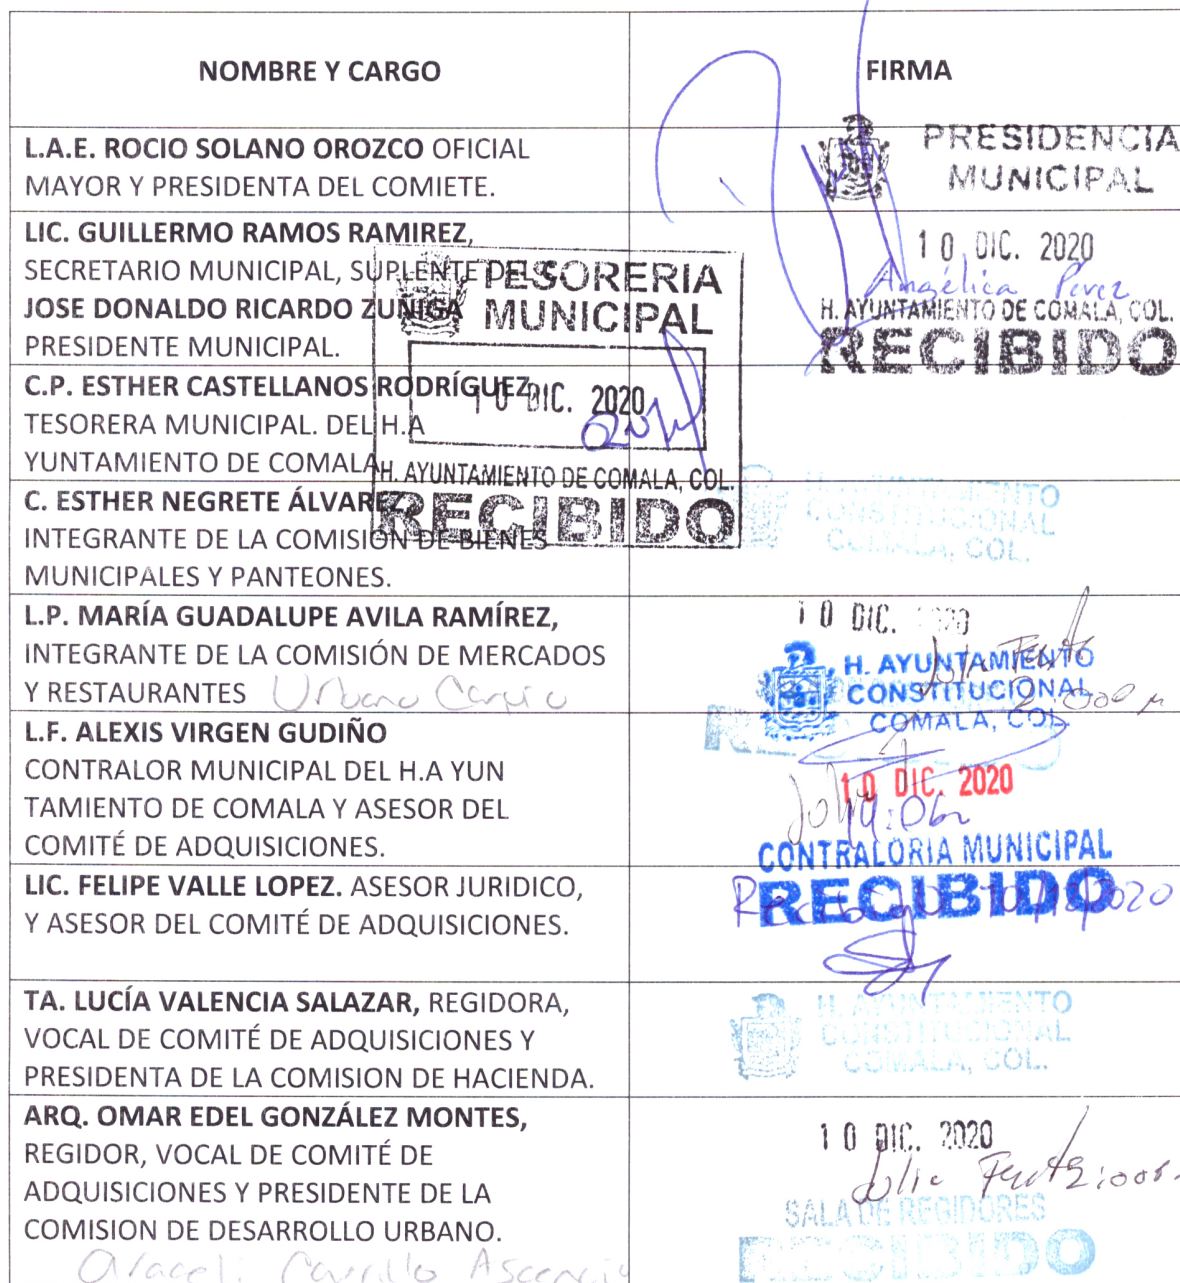 NOMBRE Y CARGO
FIRMA
L.A.E. ROCIO SOLANO OROZCO OFICIAL
MAYOR Y PRESIDENTA DEL COMIETE.
PRESIDENCIA
MUNICIPAL
10 DIC. 2020
Angélica Pérez
H. AYUNTAMIENTO DE COMALA, COL.
RECIBIDO
LIC. GUILLERMO RAMOS RAMIREZ,
SECRETARIO MUNICIPAL, SUPLENTE DEL C.
JOSE DONALDO RICARDO ZUÑIGA
PRESIDENTE MUNICIPAL.
TESORERIA
MUNICIPAL
10 DIC. 2020
H. AYUNTAMIENTO DE COMALA, COL.
RECIBIDO
C.P. ESTHER CASTELLANOS RODRÍGUEZ,
TESORERA MUNICIPAL. DEL H.A
YUNTAMIENTO DE COMALA
C. ESTHER NEGRETE ÁLVAREZ,
INTEGRANTE DE LA COMISIÓN DE BIENES
MUNICIPALES Y PANTEONES.
H. AYUNTAMIENTO
CONSTITUCIONAL
COMALA, COL.
L.P. MARÍA GUADALUPE AVILA RAMÍREZ,
INTEGRANTE DE LA COMISIÓN DE MERCADOS
Y RESTAURANTES
10 DIC. 2020
H. AYUNTAMIENTO
CONSTITUCIONAL
COMALA, COL.
L.F. ALEXIS VIRGEN GUDIÑO
CONTRALOR MUNICIPAL DEL H.A YUN
TAMIENTO DE COMALA Y ASESOR DEL
COMITÉ DE ADQUISICIONES.
10 DIC. 2020
CONTRALORIA MUNICIPAL
RECIBIDO
LIC. FELIPE VALLE LOPEZ. ASESOR JURIDICO,
Y ASESOR DEL COMITÉ DE ADQUISICIONES.
TA. LUCÍA VALENCIA SALAZAR, REGIDORA,
VOCAL DE COMITÉ DE ADQUISICIONES Y
PRESIDENTA DE LA COMISION DE HACIENDA.
H. AYUNTAMIENTO
CONSTITUCIONAL
COMALA, COL.
ARQ. OMAR EDEL GONZÁLEZ MONTES,
REGIDOR, VOCAL DE COMITÉ DE
ADQUISICIONES Y PRESIDENTE DE LA
COMISION DE DESARROLLO URBANO.
Araceli Carrillo
10 DIC. 2020
Julia
SALA DE REGIDORES
RECIBIDO